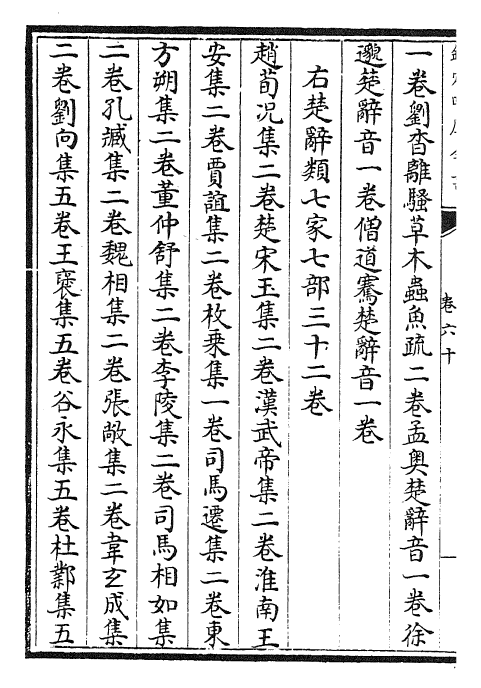 一卷劉杳離騷草木蟲魚疏二卷孟奥楚辭音一卷徐
邈楚辭音一卷僧道騫楚辭音一卷
右楚辭類七家七部三十二卷
趙荀况集二卷楚宋玉集二卷漢武帝集二卷淮南王
安集二卷賈誼集二卷枚乗集一卷司馬遷集二卷東
方朔集二卷董仲舒集二卷李陵集二卷司馬相如集
二卷孔臧集二卷魏相集二卷張敞集二卷韋玄成集
二卷劉向集五卷王襃集五卷谷永集五卷杜鄴集五
卷六十